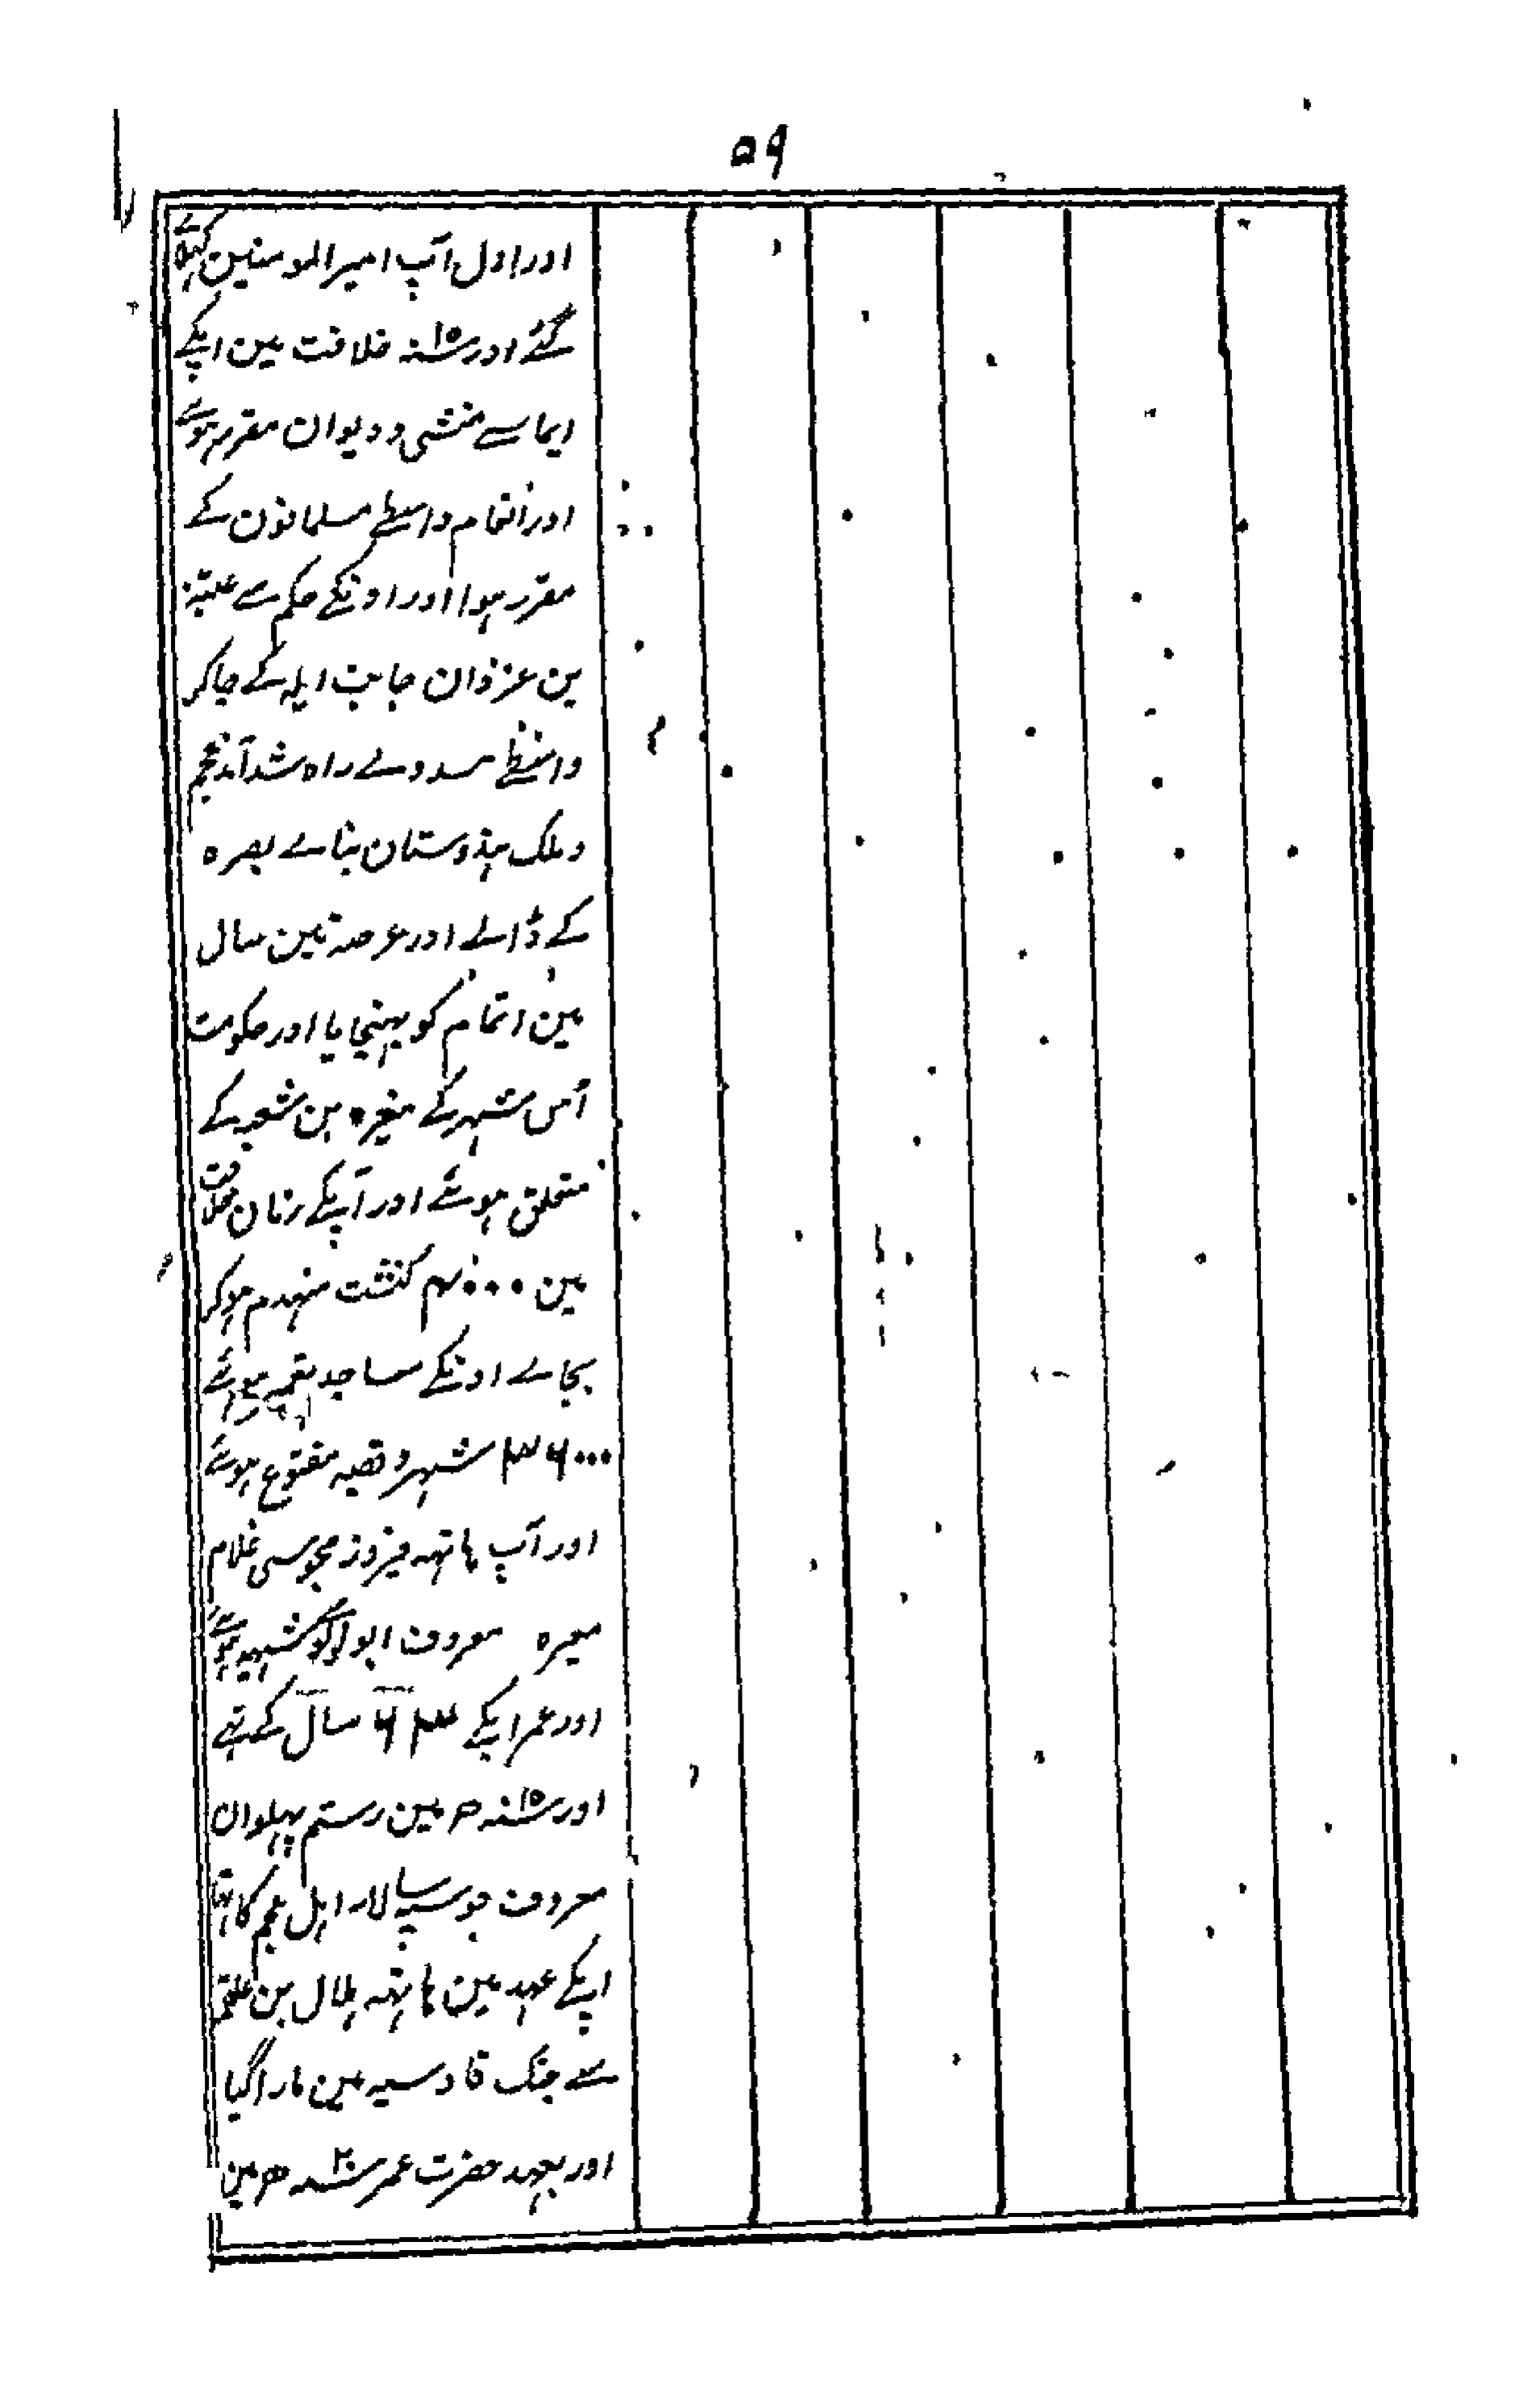 ۵۹
اور اول آپ امیر المومنین کہے
گئے اور ۱۵سنہ خلافت مین اپکے
ایماسے منشی و دیوان مقرر ہوئے
اور انتمام واسطے مسلمانون کے
مقرر ہوا اور اونکے حکم سے عتبہ
بن عزوان جانب ایلہ کے جاکر
واسطے سدوے راہ شد آمد عجم
و ملک ہندوستان بناے بصرہ
کے ڈالے اور عرصہ تین سال
مین اتمام کو پہنچایا اور حکومت
اُس شہر کے مغیرہ بن شعبہ کے
متعلق ہوئے اور آپکے زمان خلافت
مین ۴۰۰۰ کنشت منہدم ہوکر
بجاے اونکے مساجد تعمیر ہوئے
۳۶۰۰۰ شہر و قصبہ مفتوح ہوئے
اور آپ ہاتہہ فیروز مجوسی غلام
معیرہ معروف ابولولو شہید ہوئے
اور عمر اپکے ۶۳ سال کے تہے
اور ۱۵سنہ ھ مین رستم پہلوان
معروف جو سپہ سالار اہل عجم کا تہا
اپکے عہد مین ہاتہہ ہلال بن علقمہ
سے جنگ قادسیہ مین مارا گیا
اور بعہد حضرت عمر ۲۰سنہ ھ مین